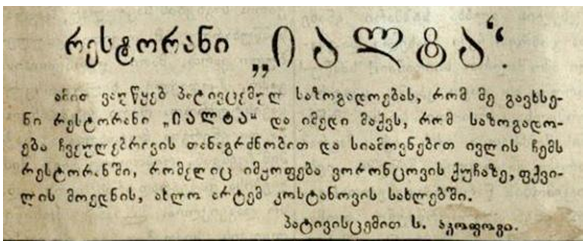 რესტორანი „იალტა“.
ამით ვაუწყებ პატივცემულ საზოგადოებას, რომ მე გავხსე-
ნი რესტორანი „იალტა“ და იმედი მაქვს, რომ საზოგადო-
ება ჩვეულებრივის თანაგრძნობით და სიამოვნებით ივლის ჩემს
რესტორანში, რომელიც იმყოფება ვორონცოვის ქუჩაზე, ფქვი-
ლის მოედნის, ახლო არტემ კოსტანოვის სახლებში.
პატივისცემით ს. აკოფოვი.